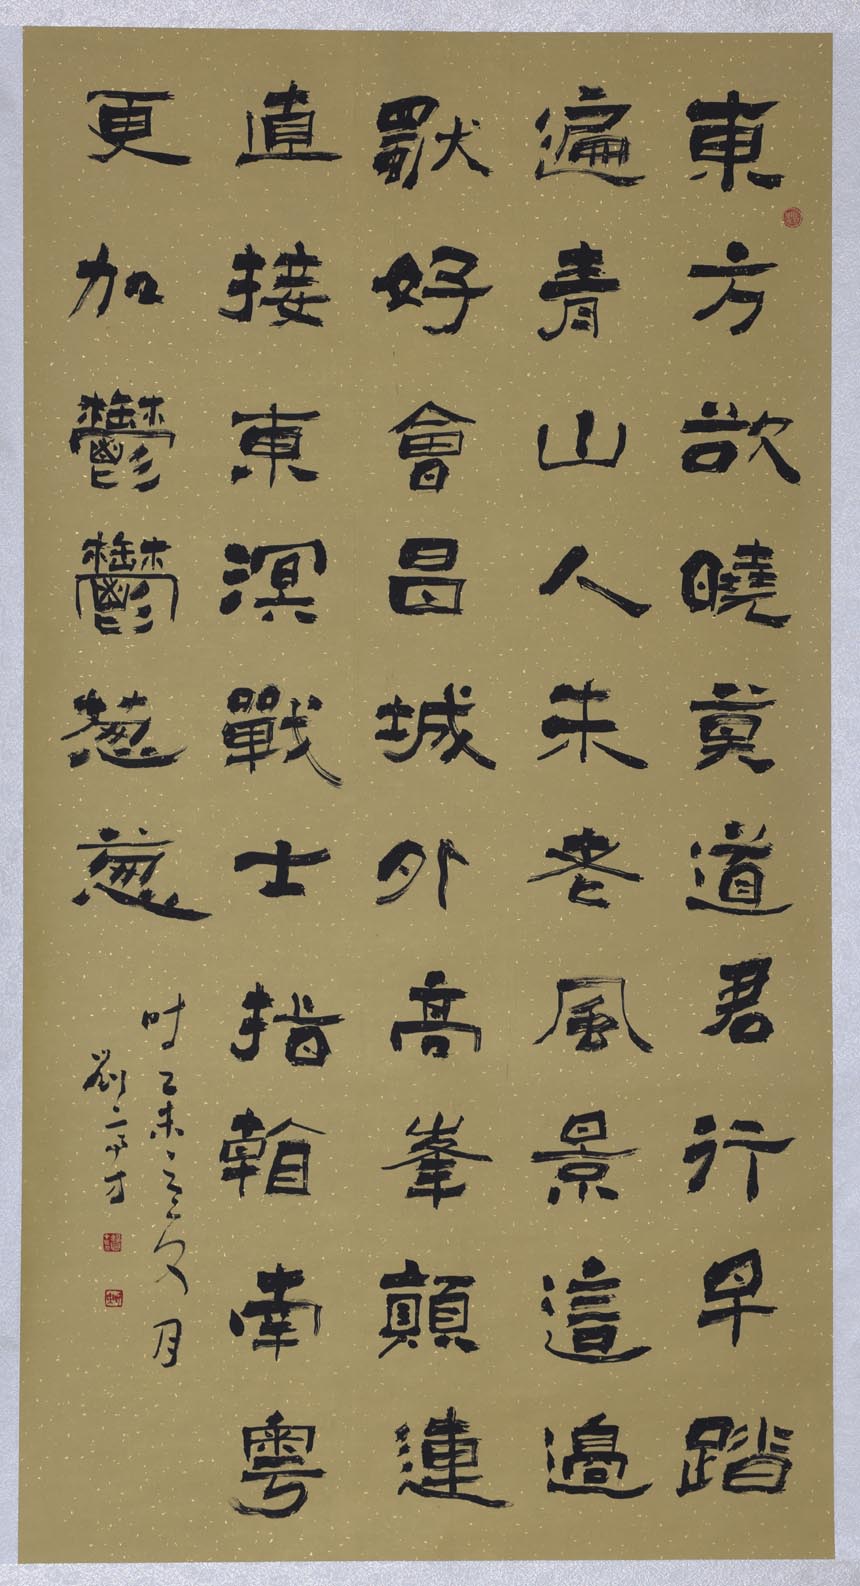 東方欲曉莫道君行早踏
遍青山人未老風景這邊
獨好會昌城外高峯顛連
直接東溟戰士指看南粵
更加鬱鬱葱葱
时乙未之夏月
劉